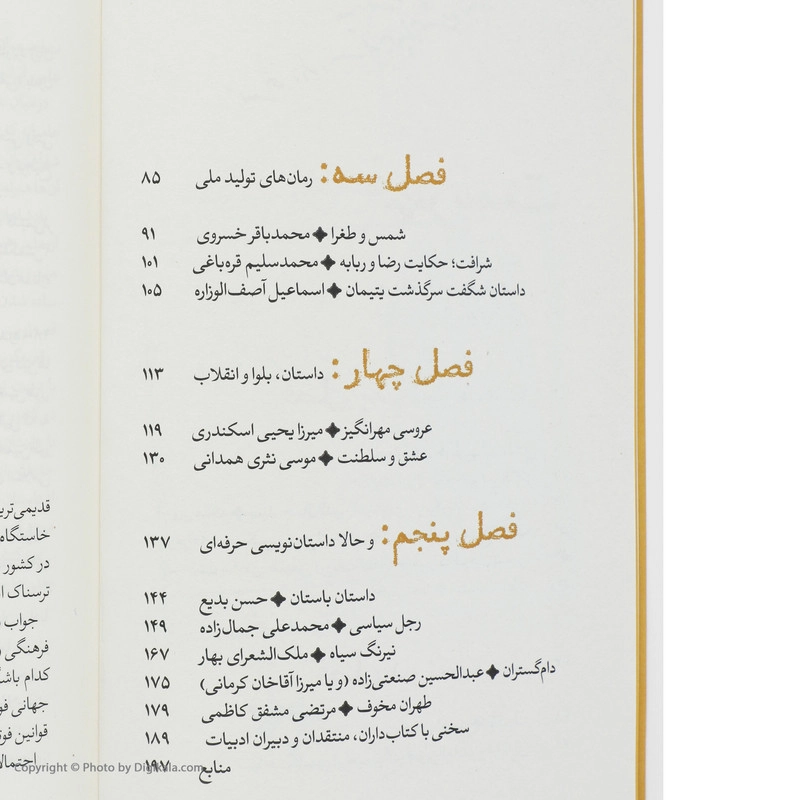 فصل سه: رمان‌های تولید ملی ۸۵
شمس و طغرا ✦ محمدباقر خسروی ۹۱
شرافت؛ حکایت رضا و ربابه ✦ محمدسلیم قره‌باغی ۱۰۱
داستان شگفت سرگذشت یتیمان ✦ اسماعیل آصف‌الوزاره ۱۰۵
فصل چهار: داستان، بلوا و انقلاب ۱۱۳
عروسی مهرانگیز ✦ میرزا یحیی اسکندری ۱۱۹
عشق و سلطنت ✦ موسی نثری همدانی ۱۳۰
فصل پنجم: و حالا داستان‌نویسی حرفه‌ای ۱۳۷
داستان باستان ✦ حسن بدیع ۱۴۴
رجل سیاسی ✦ محمدعلی جمال‌زاده ۱۴۹
نیرنگ سیاه ✦ ملک‌الشعرای بهار ۱۶۷
دام‌گستران ✦ عبدالحسین صنعتی‌زاده (و یا میرزا آقاخان کرمانی) ۱۷۵
طهران مخوف ✦ مرتضی مشفق کاظمی ۱۷۹
سخنی با کتاب‌داران، منتقدان و دبیران ادبیات ۱۸۹
منابع ۱۹۷
خاستگاه
در کشور
ترسناک
جواب
فرهنگی
کدام
جهانی
قوانین
Copyright © Photo by Digikala.com